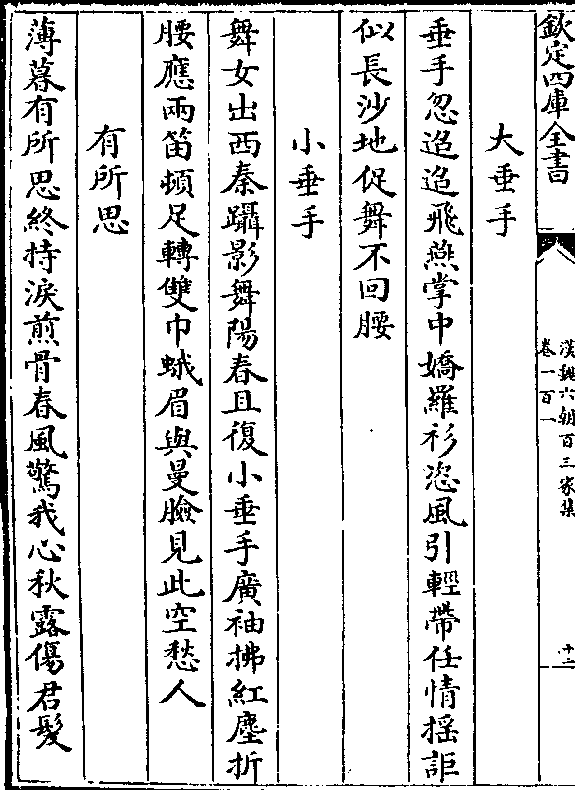 欽定四庫全書
漢魏六朝百三家集
卷一百一
十二
大垂手
垂手忽迢迢飛燕掌中嬌羅衫恣風引輕帶任情揺詎
似長沙地促舞不回腰
小垂手
舞女出西秦躡影舞陽春且復小垂手廣袖拂紅塵折
腰應兩笛頓足轉雙巾蛾眉與曼臉見此空愁人
有所思
薄暮有所思終持淚煎骨春風驚我心秋露傷君髮